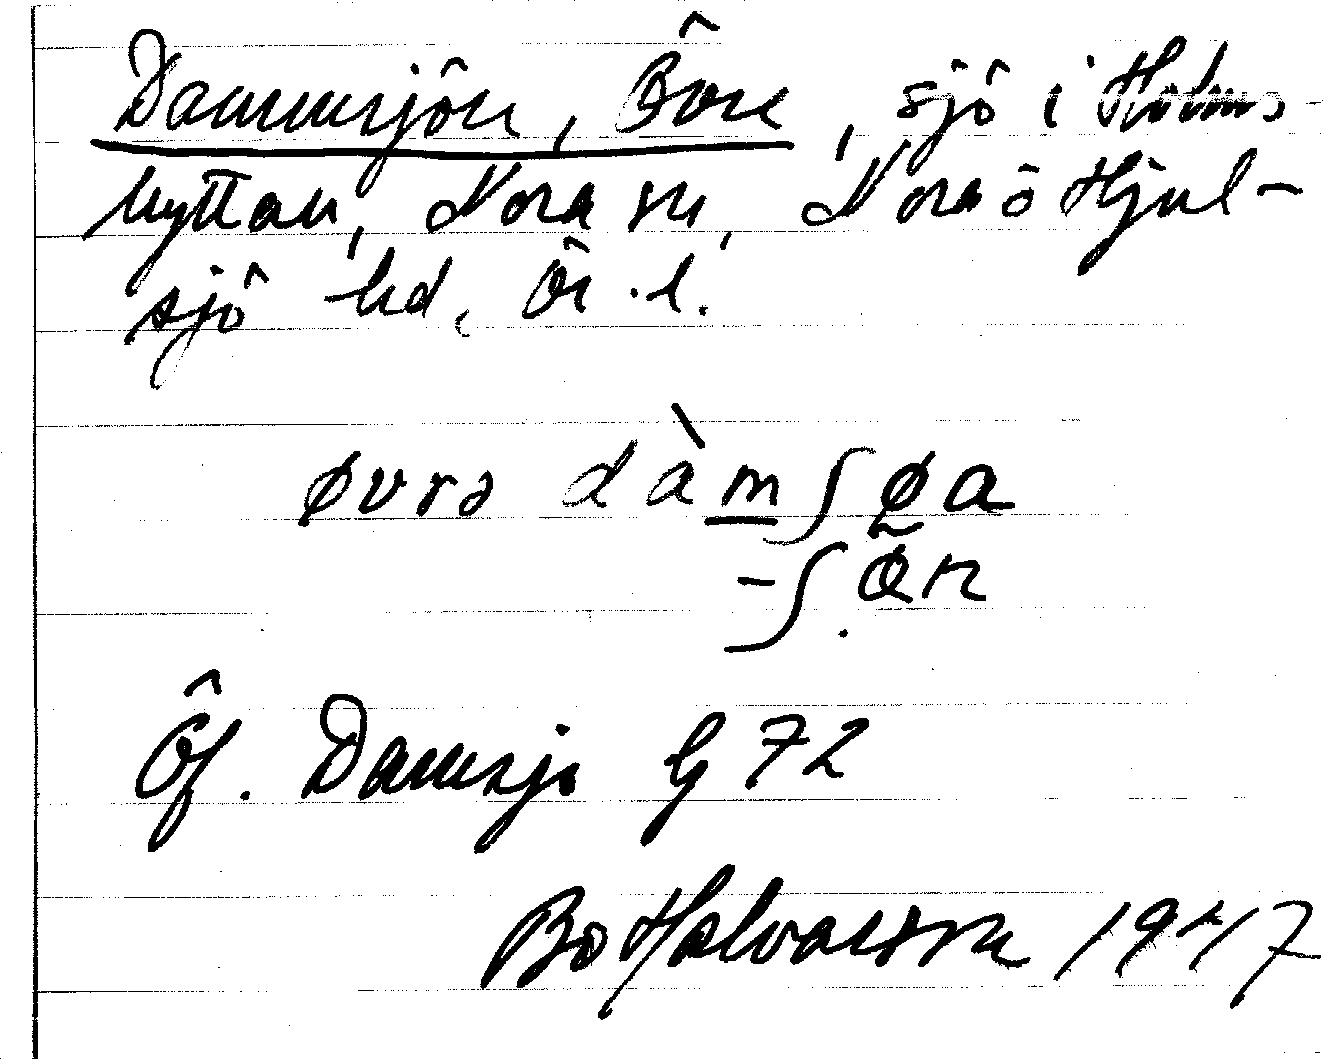 Dammsjön, Övre, sjö i Hälms-
hyttan, Nora sn, Nora ö Hjul-
sjö hd, Ör. l.
øvrə dàm∫øa
-∫ø̃n
Öf. Damsjö G 72
Bo Halvarsson 1947